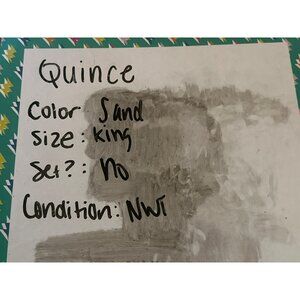 Quince
Color: Sand
Size: King
Set?: No
Condition: NWT